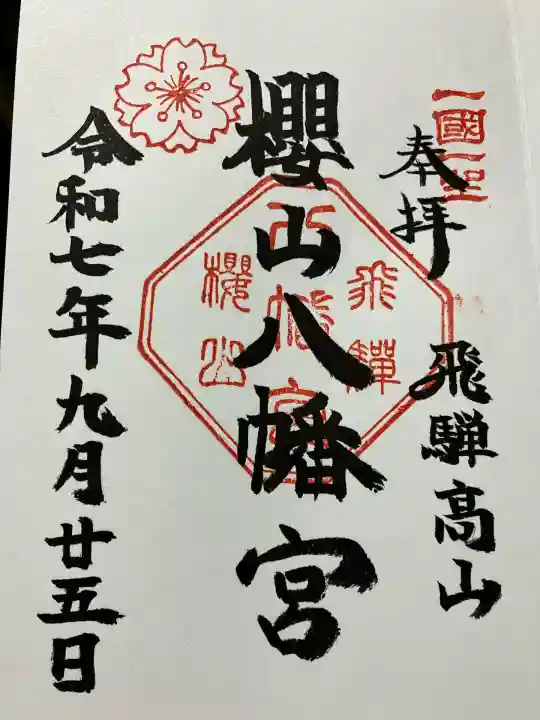 一國一社
奉拝
飛騨高山
櫻山八幡宮
飛驒
八幡宮
櫻山
令和七年九月廿五日